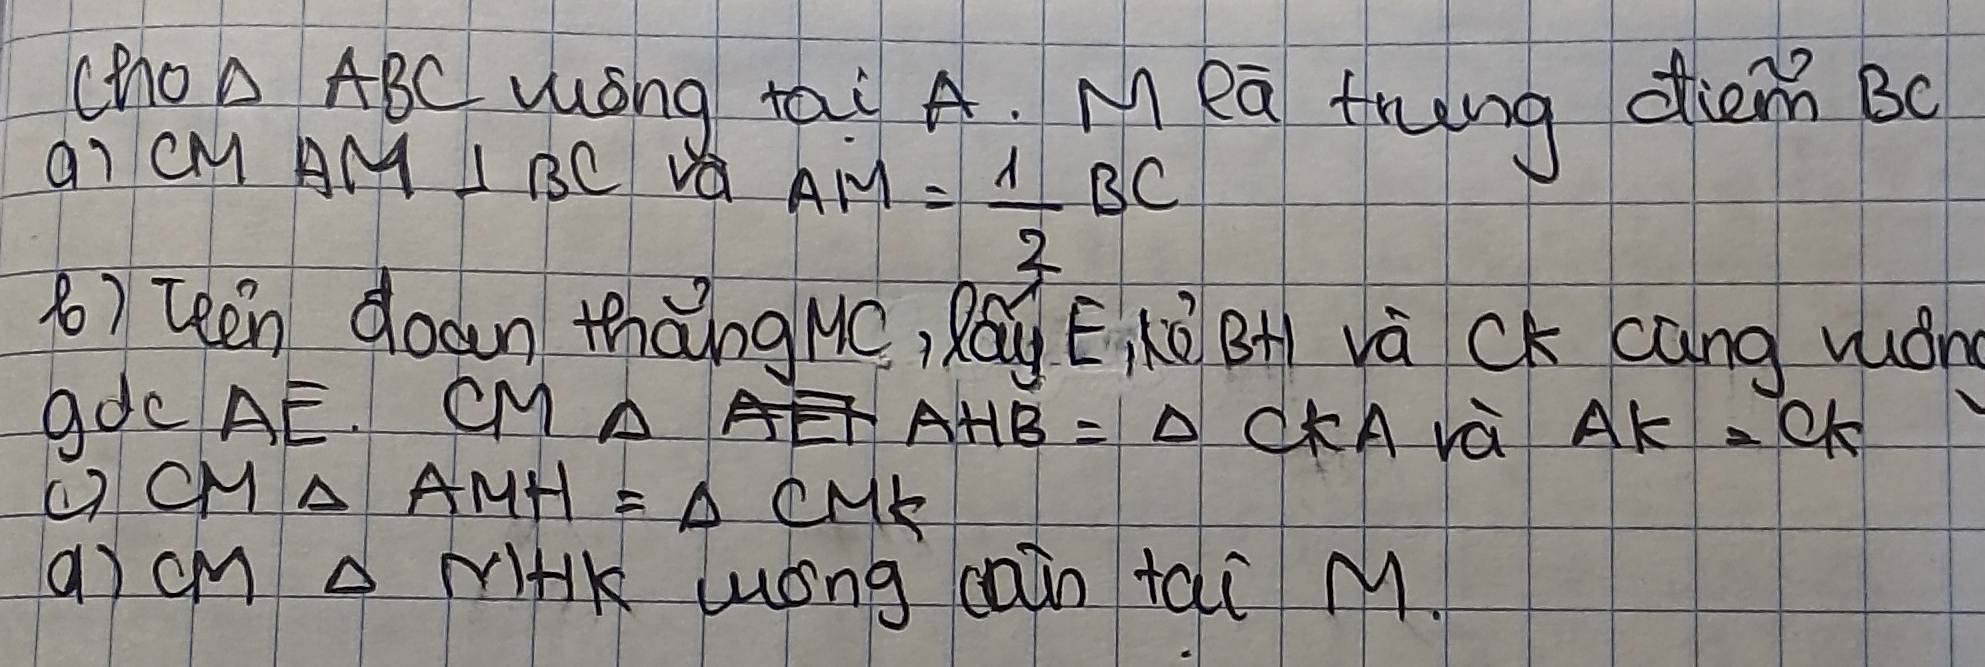 Cho Δ ABC vuông tại A. M là trung điểm BC
a) CM AM ⊥ BC và AM = 1/2 BC
b) Trên đoạn thẳng MC, lấy E, kẻ BH và CK cùng vuông
góc AE. CM Δ AHB = Δ CKA và AK = CK
c) CM Δ AMH = Δ CMK
d) CM Δ MHK vuông cân tại M.